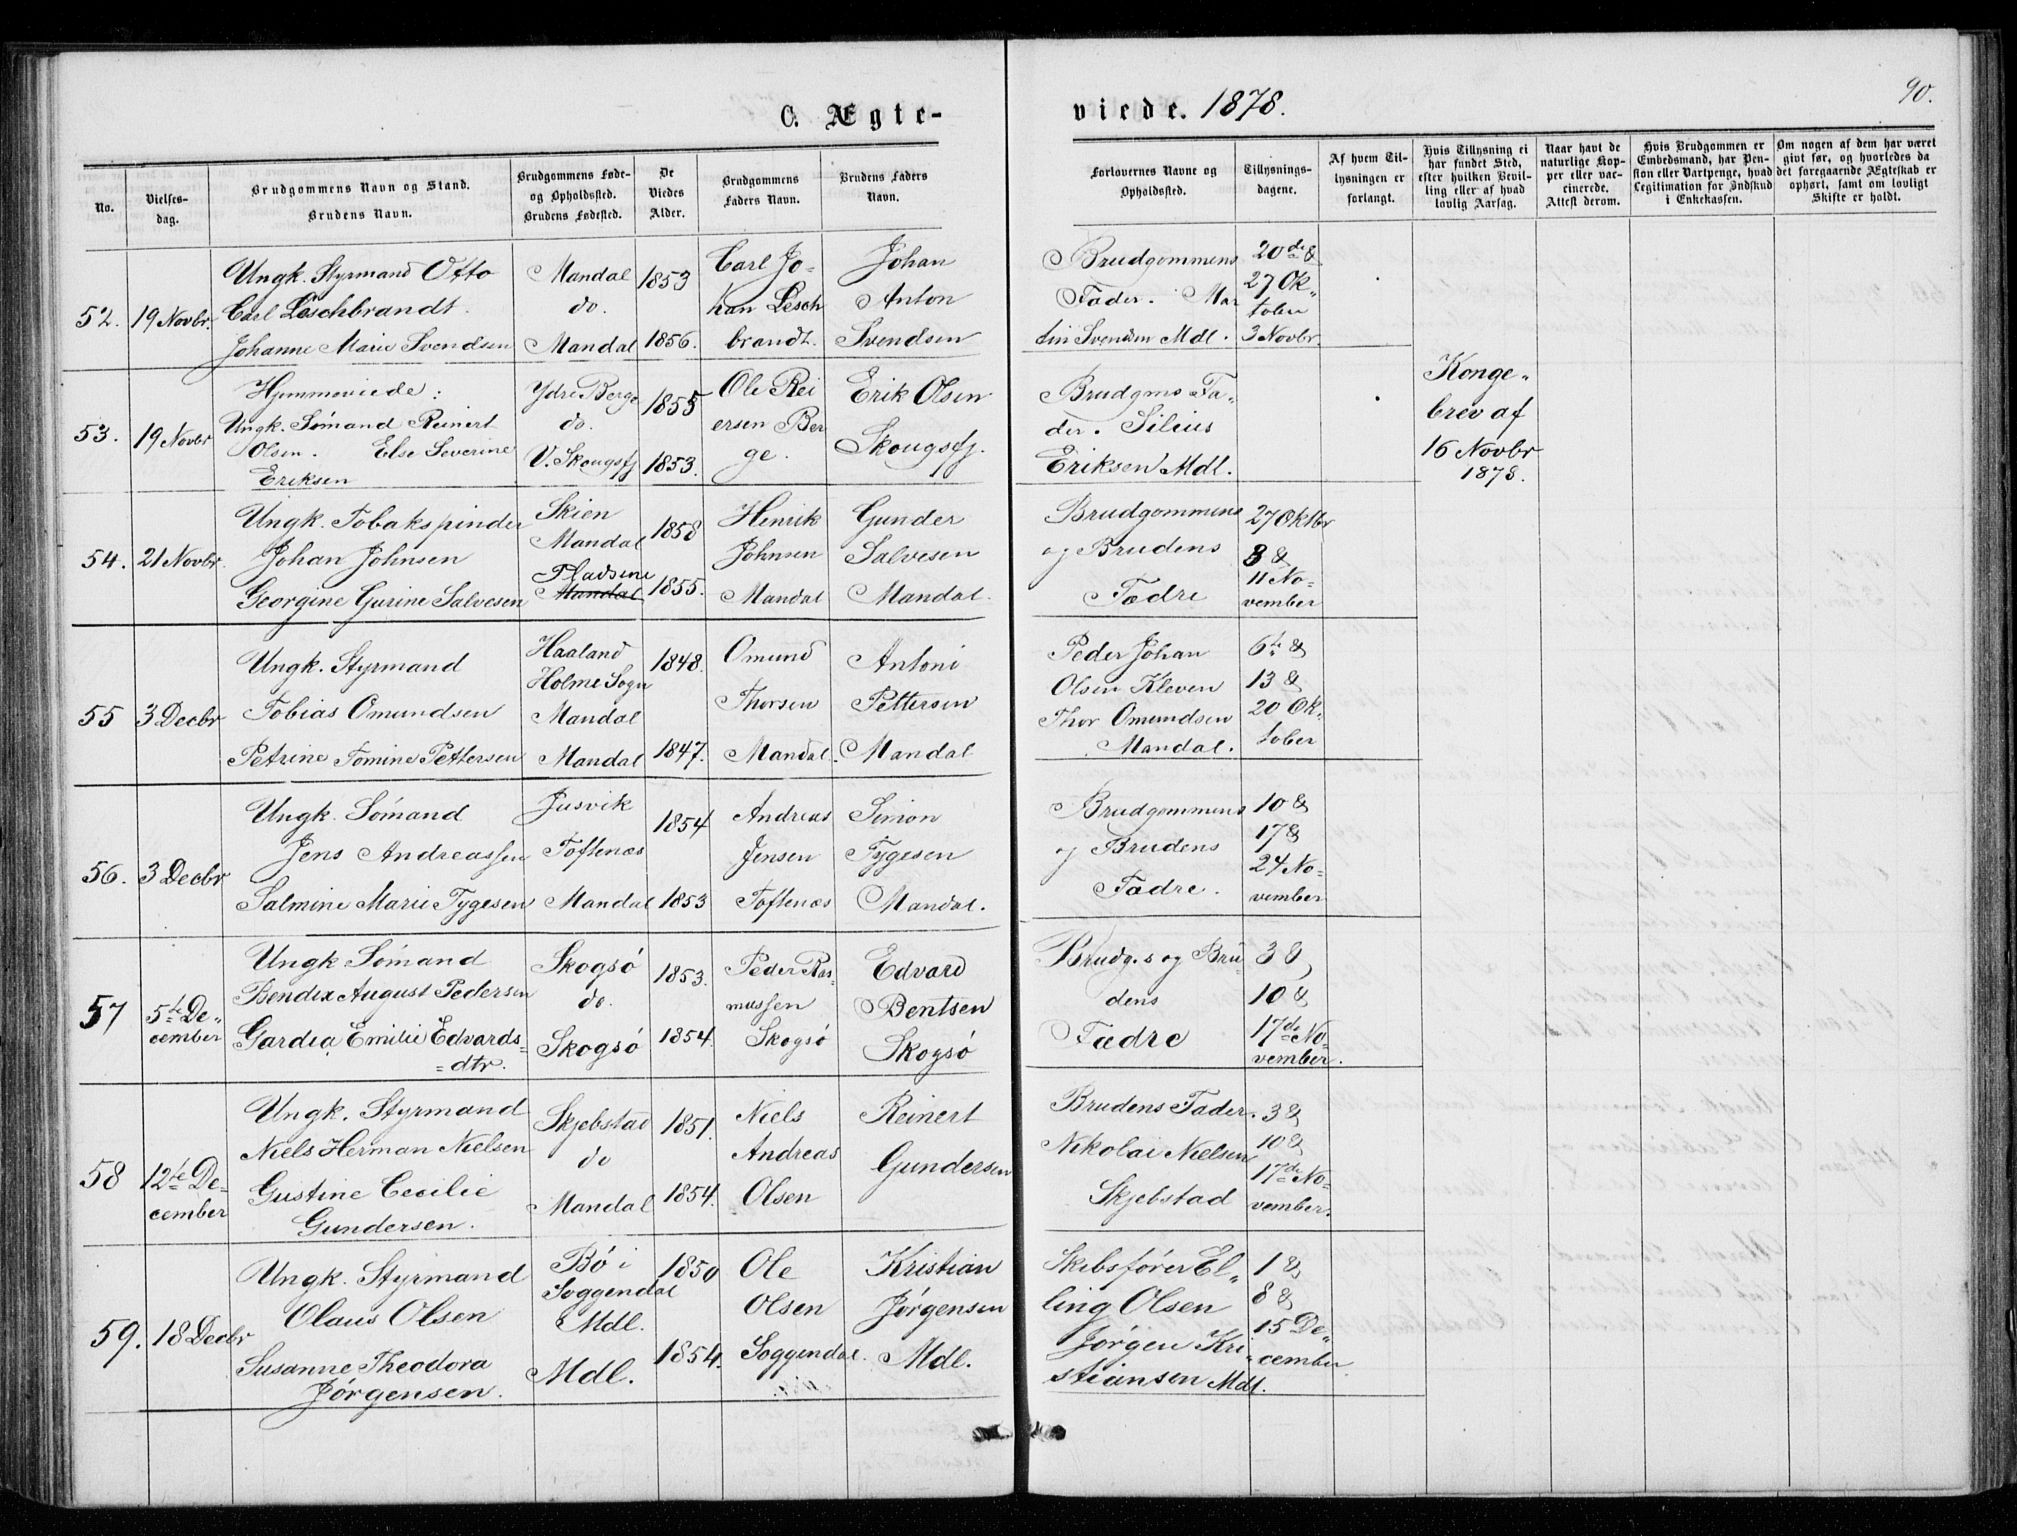 C. Ægte-
viede. 1878.
90.
No.
Vielses-
dag.
Brudgommens Navn og Stand.
Brudens Navn.
Brudgommens Føde-
og Opholdssted.
Brudens Fødested.
De
Viedes
Alder.
Brudgommens
Faders Navn.
Brudens Faders
Navn.
Forlovernes Navne og
Opholdssted.
Tillysnings-
dagene.
Af hvem Til-
lysningen er
forlangt.
Hvis Tillysning ei
har fundet Sted,
efter hvilken Bevil-
ling eller af hvad
lovlig Aarsag.
Naar havt de
naturlige Kop-
per eller vac-
cinerede.
Attest derom.
Hvis Brudgommen er
Embedsmand, har Pen-
sion eller Vartpenge, hvad
Legitimation for Indskud
i Enkekassen.
Om nogen af dem har været
givt før, og hvorledes da
det foregaaende Ægteskab er
ophørt, samt om lovligt
Skifte er holdt.
52.
19 Novbr.
Ungk. Styrmand Otto
Carl Leschbrandt.
Johanne Marie Svendsen
Mandal
do.
Mandal
1853
1856.
Carl Jo-
han Lesch
brandt.
Johan
Anton
Svendsen
Brudgommens
Fader. Mar
tin Svendsen Mdl.
20de &
27 Ok„
tober
3 Novbr.
53.
19 Novbr
Hjemmeviede:
Ungk. Sømand Reinert
Olsen. Else Severine
Eriksen
Ydre Berge
do.
V. Skougsfj
1855
1853.
Ole Rei
ersen Ber
ge.
Erik Olsen
Skougsfj.
Brudgms Fa„
der. Silius
Eriksen Mdl.
Konge„
brev af
16 Novbr
1878.
54.
21 Novbr.
Ungk. Tobakspinder
Johan Johnsen
Georgine Gurine Salvesen
Skien
Mandal
Pladsene
Mandal
1858
1855.
Henrik
Johnsen
Mandal
Gunder
Salvesen
Mandal.
Brudgommens
og Brudens
Fædre
27 Oktbr
3 &
11 No-
vember
55
3 Decbr
Ungk. Styrmand
Tobias Omundsen
Petrine Tomine Pettersen
Haaland
Holme Sogn
Mandal
Mandal
1848.
1847.
Omund
Thorsen
Mandal.
Antoni
Pettersen
Mandal
Peder Johan
Olsen Kleven
Thor Omundsen
Mandal.
6te &
13 &
20 Ok„
tober
56.
3 Decbr
Ungk. Sømand
Jens Andreassen
Salmine Marie Tygesen
Jusvik
Toftenæs
Mandal
1854
1853
Andreas
Jensen
Toftenæs
Simon
Tygesen
Mandal.
Brudgommens
og Brudens
Fædre.
10 &
17 &
24 No-
vember
57
5te De„
cember
Ungk Sømand
Bendix August Pedersen
Gardea Emilie Edvards-
=dtr.
Skogsø
do.
Skogsø
1853.
1854.
Peder Ras
mussen
Skogsø
Edvard
Bentsen
Skogsø
Brudg.s og Bru
dens
Fædre
3 &
10 &
17de No-
vember.
58
12te De-
cember
Ungk. Styrmand
Niels Herman Nielsen
Gustine Cecilie
Gundersen.
Skjebstad
do
Mandal
1851.
1854.
Niels
Andreas
Olsen
Reinert
Gundersen
Brudens Fader.
Nikolai Nielsen
Skjebstad
3 &
10 &
17de No-
vember.
59.
18 Decbr
Ungk. Styrmand
Olaus Olsen
Susanne Theodora
Jørgensen.
Bø i
Soggendal
Mdl.
Mdl.
1850
1854.
Ole
Olsen
Soggendal.
Kristian
Jørgensen
Mdl.
Skibsfører El„
ling Olsen
Jørgen Kri-
stiansen Mdl.
1 &
8 &
15 De„
cember